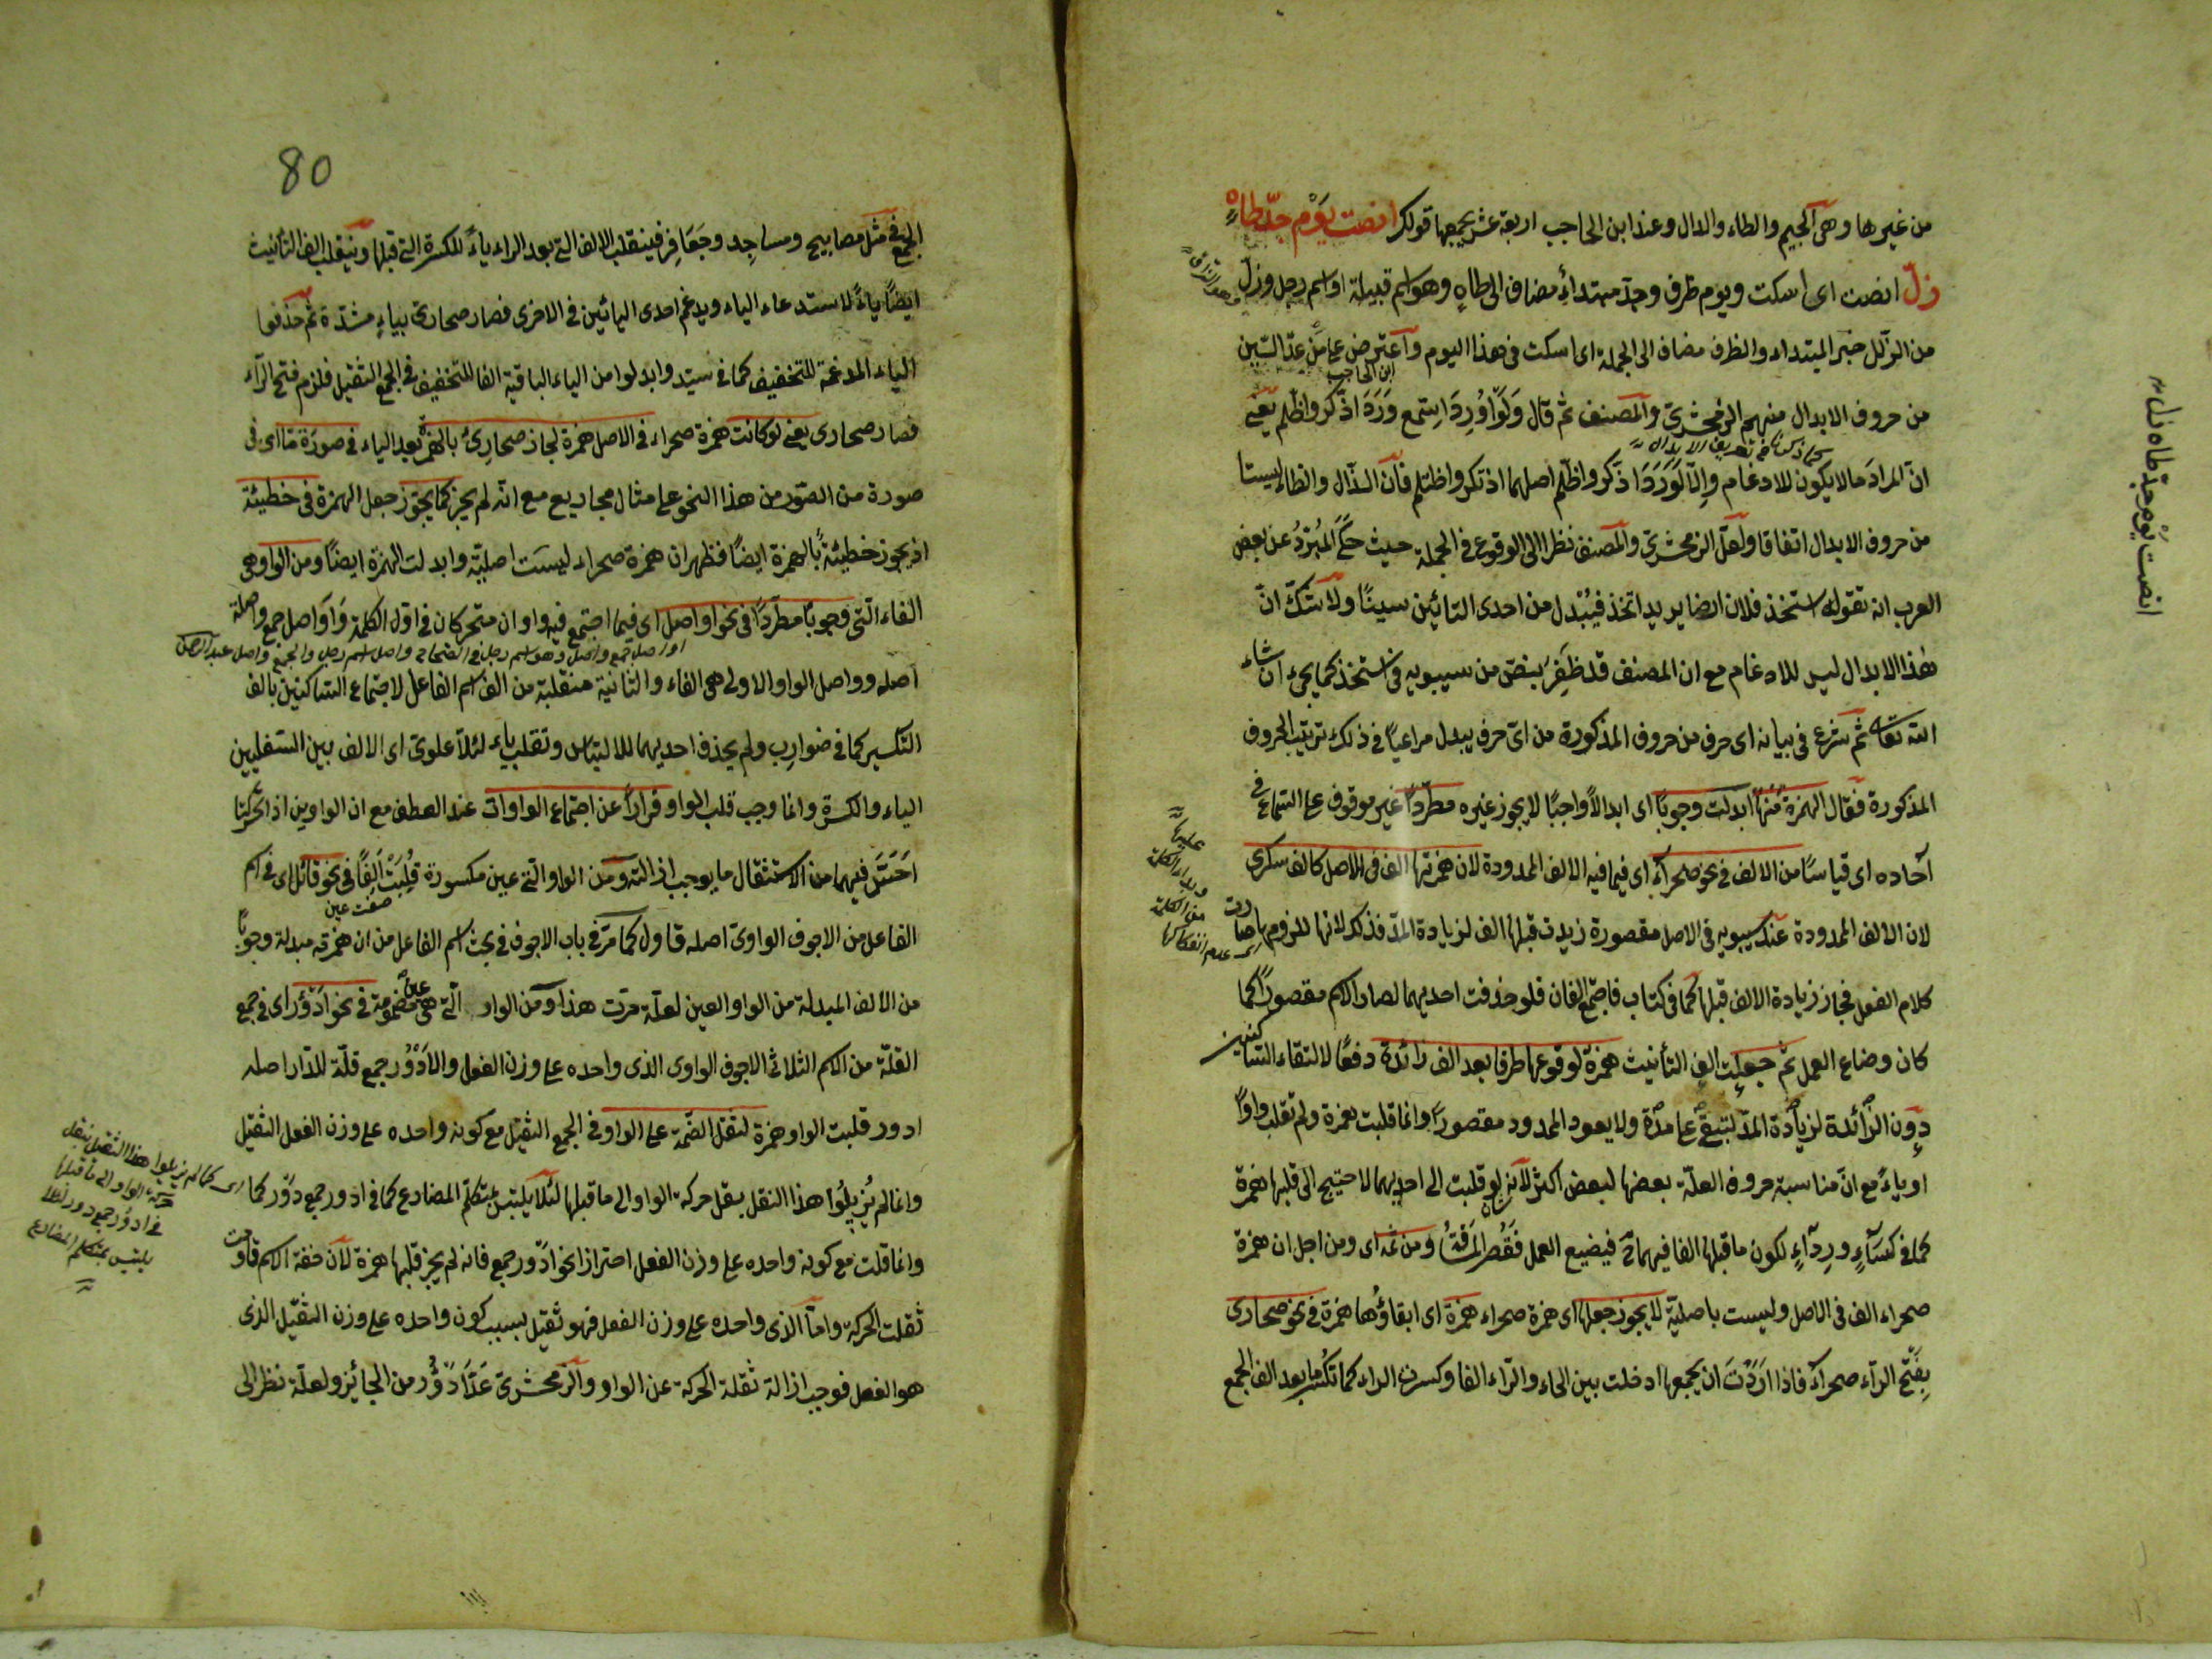 من غيرها وهى الجيم والطاء والدال وعند ابن الحاجب اربعة عشر يجمعها قولك انصت يَوْم جدّ طاهٍ
زلّ انصت اى اسكت ويوم ظرف وجدّ مبتداء مضاف الى طاهٍ وهو اسم قبيلة او اسم رجل وزلّ
من الزلل خبر المبتداء والظرف مضاف الى الجملة اى اسكت فى هذا اليوم وآعترض على مَن عدّ السّين
ابن الحاجب
من حروف الابدال منهم الزمخشرىّ والمصنف ثم قال وَلَوْ اُورِدَ اِستمع وَرَدَ اذّكر واظّلم يعنى
كما ذكرنا فى تعريف الابدال
انّ المرادَ مالا يكون للادغام والّا لَوَرَدَ اذّكر واظّلم اصلهما اذتكر واظتلم فانّ الذّال والظاء ليستا
من حروف الابدال اتفاقا ولعلّ الزمخشرىّ والمصنف نظرا الى الوقوع فى الجملة حيث حكى المبُرّدُ عن بعض
العرب انه تقول استخذ فلان ارضا يريد اتخذ فيُبْدل من احدى التائين سينًا ولا شكّ انّ
هٰذا الابدال ليس للادغام مع ان المصنف قد ظَفِرَ بنصّ من سيبويه فى استخذ كما يجىء ان شاء
الله تعالى ثم شرع فى بيان اى حرف من حروف المذكورة من اىّ حرف يبدل مراعياً فى ذلك ترتيب الحروف
المذكورة فقال الهمزة مَنّها ابدلت وجوبًا اى ابدالاً واجبًا لا يجوز غيره مطرّدًا غير موقوف على السّماع فى
آحاده اى قياسًا من الالف فى نحو صحراء اى فيما فيه الالف الممدودة لان همزتها الف فى الاصل كالف سكرى
لان الالف الممدودة عند سيبويه فى الاصل مقصورة زيدت قبلها الف لزيادة المدّ فذلك لانها للزومها صارت
كلام الفعل فجاز زيادة الالف قبلها كما فى كتاب فاجتمع الفان فلو حذفت احديهما لصار الاسم مقصوراً كما
كان وضاع العمل ثم جعلت الف التأنيث همزة لوقوعها طرفا بعد الف زائدة دفعًا لالتقاء الساكنين
دون الزّائدة لزيادة المدّ لتبقى على مدّة ولا يعود الممدود مقصوراً وانما قلبت همزة ولم تقلب واواً
او ياءً مع انّ مناسبة حروف العلّة بعضها لبعض اكثر لانه لو قلبت الى احديهما لاحتيج الى قلبها همزة
كما فى كساءٍ ورداءٍ لكون ما قبلها الفا فيهما فيضيع العمل فَقُصِر المَسَافَةُ ومن ثمه اى ومن اجل ان همزة
صحراء الف فى الاصل وليست باصليّة لا يجوز جعلها اى همزة صحراء همزة اى ابقاؤها همزة فى نحو صحارى
بِفتح الرّاء صحراء فاذا اردّت ان يجمعها ادخلت بين الحاء والرّاء الفا وكسرت الراء كما تكسر ما بعد الف الجمع
انصت يَوْم جدّ طاه زلّ
80
الجمع فى مثل مصابيح ومساجِد وجَعَافِر فينقلب الالف التى بعد الراء ياءً للكسرة التى قبلها وينقلب الف التأنيث
ايضًا ياءً لاستدعاء الياء ويدغم احدى اليائين فى الاخرى فصار صحارىّ بياءٍ مشدّدة ثم حذفوا
الياء المدغمة للتخفيف كما فى سيّد وابدلوا من الياء الباقية الفا للتخفيف فى الجمع الثقيل فلزم فتح الرّاء
فصار صحارى يعنى لو كانت همزة صحراء فى الاصل همزة لجاز صحارئ بالهمزة بعد الياء فى صورة مّا اى فى
صورة من الصّور من هذا النحو على مثال مجاريع مع انّه لم يجز كما يجوز جعل الهمزة فى خطيئة
اذ يجوز خطيئة بالهمزة ايضًا فظهر ان همزة صحراء ليسَت اصليّة وابدلت الهمزة ايضًا ومن الواو هى
الفاء الّتى وجوبًا مطرّدًا فى نحو اواصل اى فيما اجتمع فيه واوان متحركان فى اوّل الكلمة وَاَوَاصل جمع واصلة
اواصل جمع واصل وهو اسم رجل فى الصّحاح واصل اسم رجل والجمع واصل عبد الرحمن
اصله وواصل الواو الاولى هى الفاء والثانية منقلبة من الف اسم الفاعل لاجتماع الساكنين بالف
التكسير كما فى ضوارب ولم يحذف احديهما للالتباس وتقلب ياء لئلا علوىّ اى الالف بين السّفليين
الياء والكسرة وانما وجب قلب الواو فراراً عن اجتماع الواوات عند العطف مع ان الواوين اذا تحركتا
اَحَسَّ فيهما من الاستثقال ما يوجب ازالته ومن الواو الّتى عين مكسورة قُلِبَتْ اَلِفًا فى نحو قائل اى فى اسم
صفت عين
الفاعل من الاجوف الواوىّ اصله قاول كما مرّ فى باب الاجوف فى بحث اسم الفاعل من ان همزته مبدلة وجوبًا
من الالف المبدلة من الواو العين لعلّة مرّت هذا ومن الواو الّتى هى عين مضمومة فى نحو ادْؤر اى فى جمع
القلّة من الاسم الثلاثى الاجوف الواوى الذى واحده على وزن الفعل والاَدْؤُر جمع قلّة للدّار اصله
ادور قلبت الواو همزة لثقل الضّمّة على الواو فى الجمع الثقيل مع كونه واحده على وزن الفعل الثقيل
وانما لم يُزيلوا هذا الثقل بنقل حركة الواو الى ما قبلها لئلّا يلتبس بمتكلّم المضارع كما فى ادور جمع دوّر كما
وانما قلت مع كونه واحده على وزن الفعل احترازا نحو ادّور جمع فانه لم يجز قلبها همزة لانّ خفة الاسم قاومت
ثقلت الحركة وامّا الّذى واحده على وزن الفعل فهو ثقيل بسبب كون واحده على وزن الثقيل الذى
هو الفعل فوجب ازالة ثقلة الحركة عن الواو والزّمخشرىّ عَدّ اَدْؤُر من الجائز ولعلّه نظر الى
اى كما لم يزيلوا هذا الثقيل بنقل
حركة الواو الى ما قبلها
فى ادوُر جمع دور لئلا
يلتبس بمتكلم المضارع